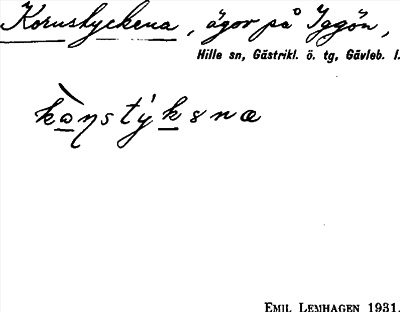 Kornstyckena, ägor på Iggön,
Hille sn, Gästrikl. ö. tg, Gävleb. l.
kàn̠stýksnæ
EMIL LEMHAGEN 1931.